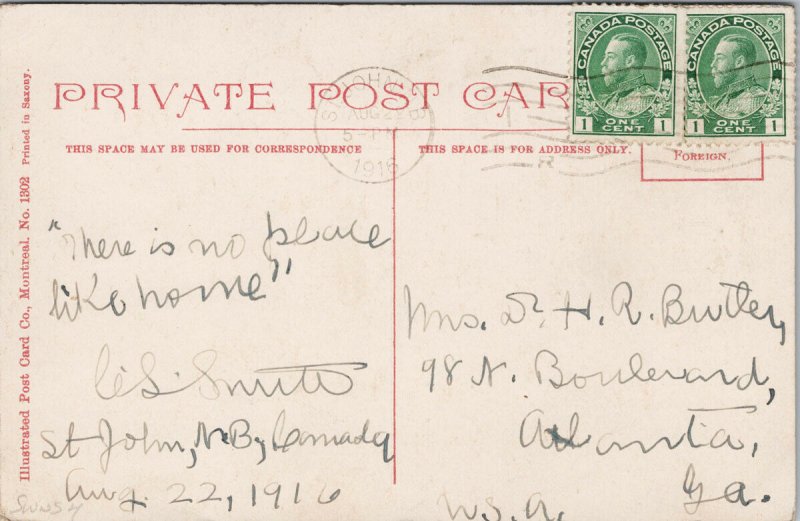 PRIVATE POST CAR
CANADA POSTAGE
1 ONE CENT 1
CANADA POSTAGE
1 ONE CENT 1
ST. JOHN N.B.
AUG 22
5-PM
1916
THIS SPACE MAY BE USED FOR CORRESPONDENCE
THIS SPACE IS FOR ADDRESS ONLY.
FOREIGN.
Illustrated Post Card Co., Montreal. No. 1302 Printed in Saxony.
"There is no place
like home"
C.S. Smith
St John, N.B., Canada
Aug. 22, 1916
Mrs. Dr. H. R. Butler,
98 N. Boulevard,
Atlanta,
Ga.
U.S.A.